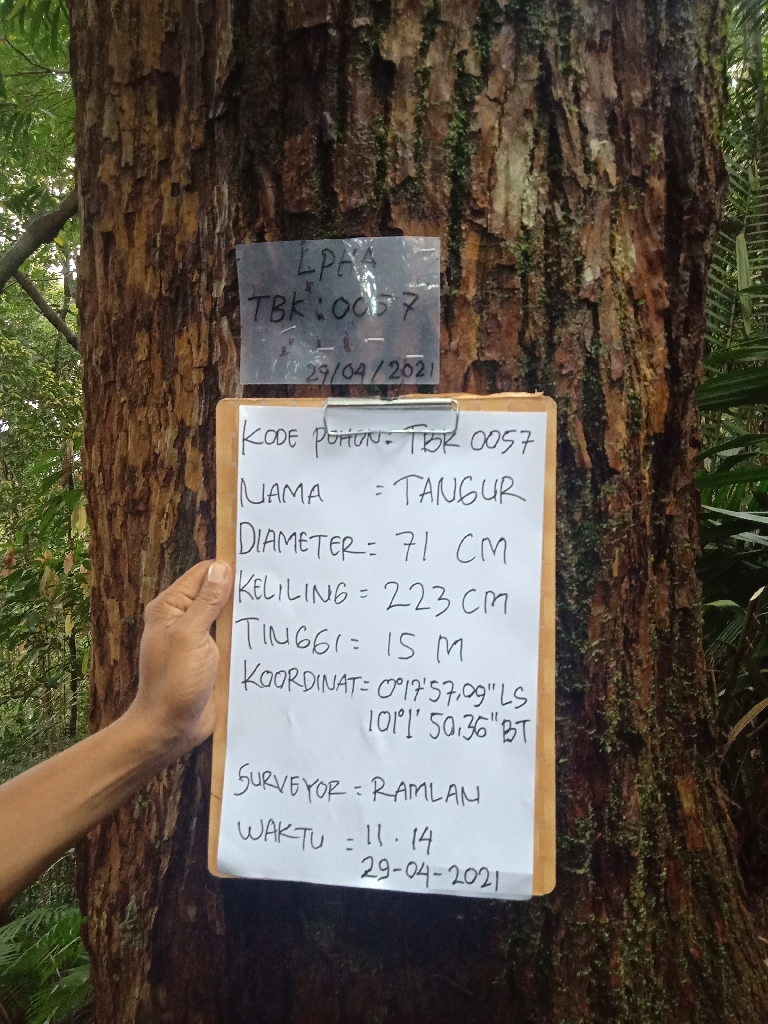 LPHA
TBK : 0057
29/04/2021
KODE POHON = TBK 0057
NAMA = TANGUR
DIAMETER = 71 CM
KELILING = 223 CM
TINGGI = 15 M
KOORDINAT = 0°17'57,09" LS
101°1' 50,36" BT
SURVEYOR = RAMLAN
WAKTU = 11.14
29-04-2021